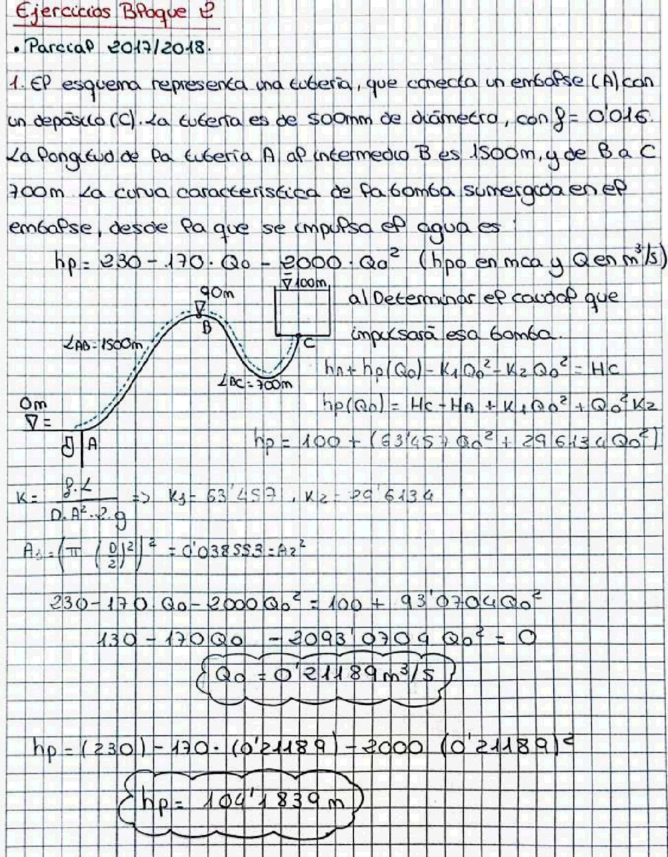 Ejercicios Bloque 2
• Parcial 2017/2018.
1. El esquema representa una tubería, que conecta un embalse (A) con
un depósito (C). La tubería es de 500mm de diámetro, con f = 0'016
La longitud de la tubería A al intermedio B es 1500m, y de B a C
700m La curva característica de la bomba sumergida en el
embalse, desde la que se impulsa el agua es:
hp = 230 - 170 · Q0 - 2000 · Q0² (hp0 en mca y Q en m³/s)
90m
100m
a) Determinar el caudal que
impulsará esa bomba.
B
C
LAB = 1500m
LBC = 700m
0m
A
hA + hp(Q0) - K1Q0² - K2Q0² = HC
hp(Q0) = HC - HA + K1Q0² + Q0²K2
hp = 100 + (63'457 Q0² + 29'6134Q0²)
K = f.L / D.A².2.g => K1 = 63'457, K2 = 29'6134
A1 = (π (D/2)²)² = 0'038553 = A2²
230 - 170.Q0 - 2000Q0² = 100 + 93'0704Q0²
130 - 170Q0 - 2093'0704 Q0² = 0
Q0 = 0'21189 m³/s
hp = (230) - 170 · (0'21189) - 2000 (0'21189)²
hp = 104'1839 m